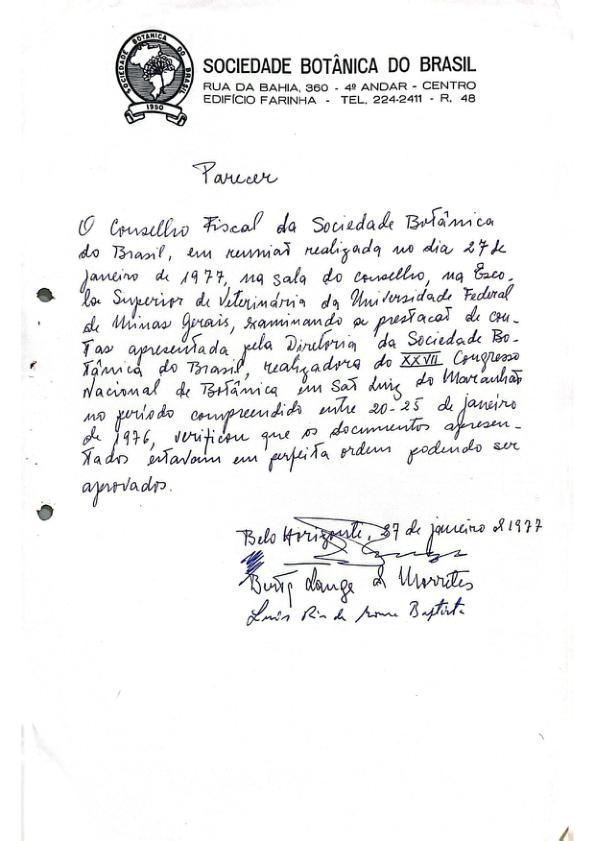 SOCIEDADE BOTÂNICA DO BRASIL
1950
SOCIEDADE BOTÂNICA DO BRASIL
RUA DA BAHIA, 360 - 4º ANDAR - CENTRO
EDIFÍCIO FARINHA - TEL. 224-2411 - R. 48
Parecer
O Conselho Fiscal da Sociedade Botânica
do Brasil, em reunião realizada no dia 27 de
janeiro de 1977, na sala do conselho, na Esco-
la Superior de Veterinária da Universidade Federal
de Minas Gerais, examinando a prestação de con-
tas apresentada pela Diretoria da Sociedade Bo-
tânica do Brasil, realizadora do XXVII Congresso
Nacional de Botânica em São Luiz do Maranhão
no período compreendido entre 20-25 de janeiro
de 1976, verificou que os documentos apresen-
tados estavam em perfeita ordem podendo ser
aprovados.
Belo Horizonte, 27 de janeiro d 1977
Berta Lange de Morretes
Luis Baptista